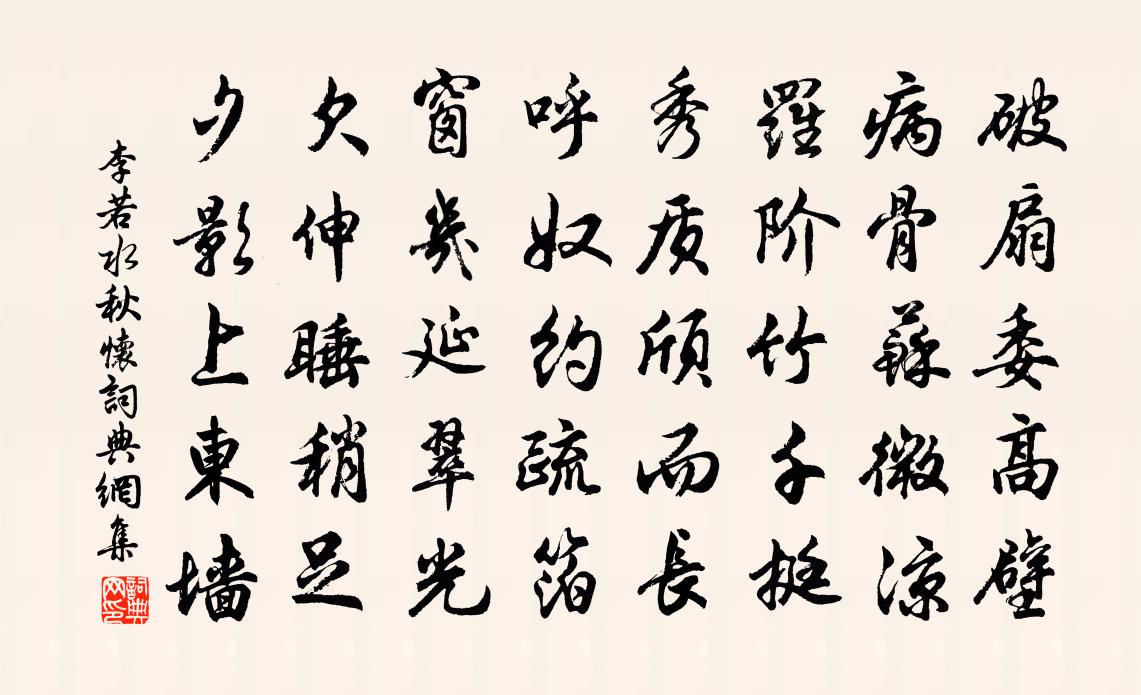 破扇委高壁
病骨蘇微凉
羅阶竹千挺
秀质颀而長
呼奴約疏箔
窗幾延翠光
欠伸睡稍足
夕影上東墙
李若水秋懷詞典網集
詞典網印